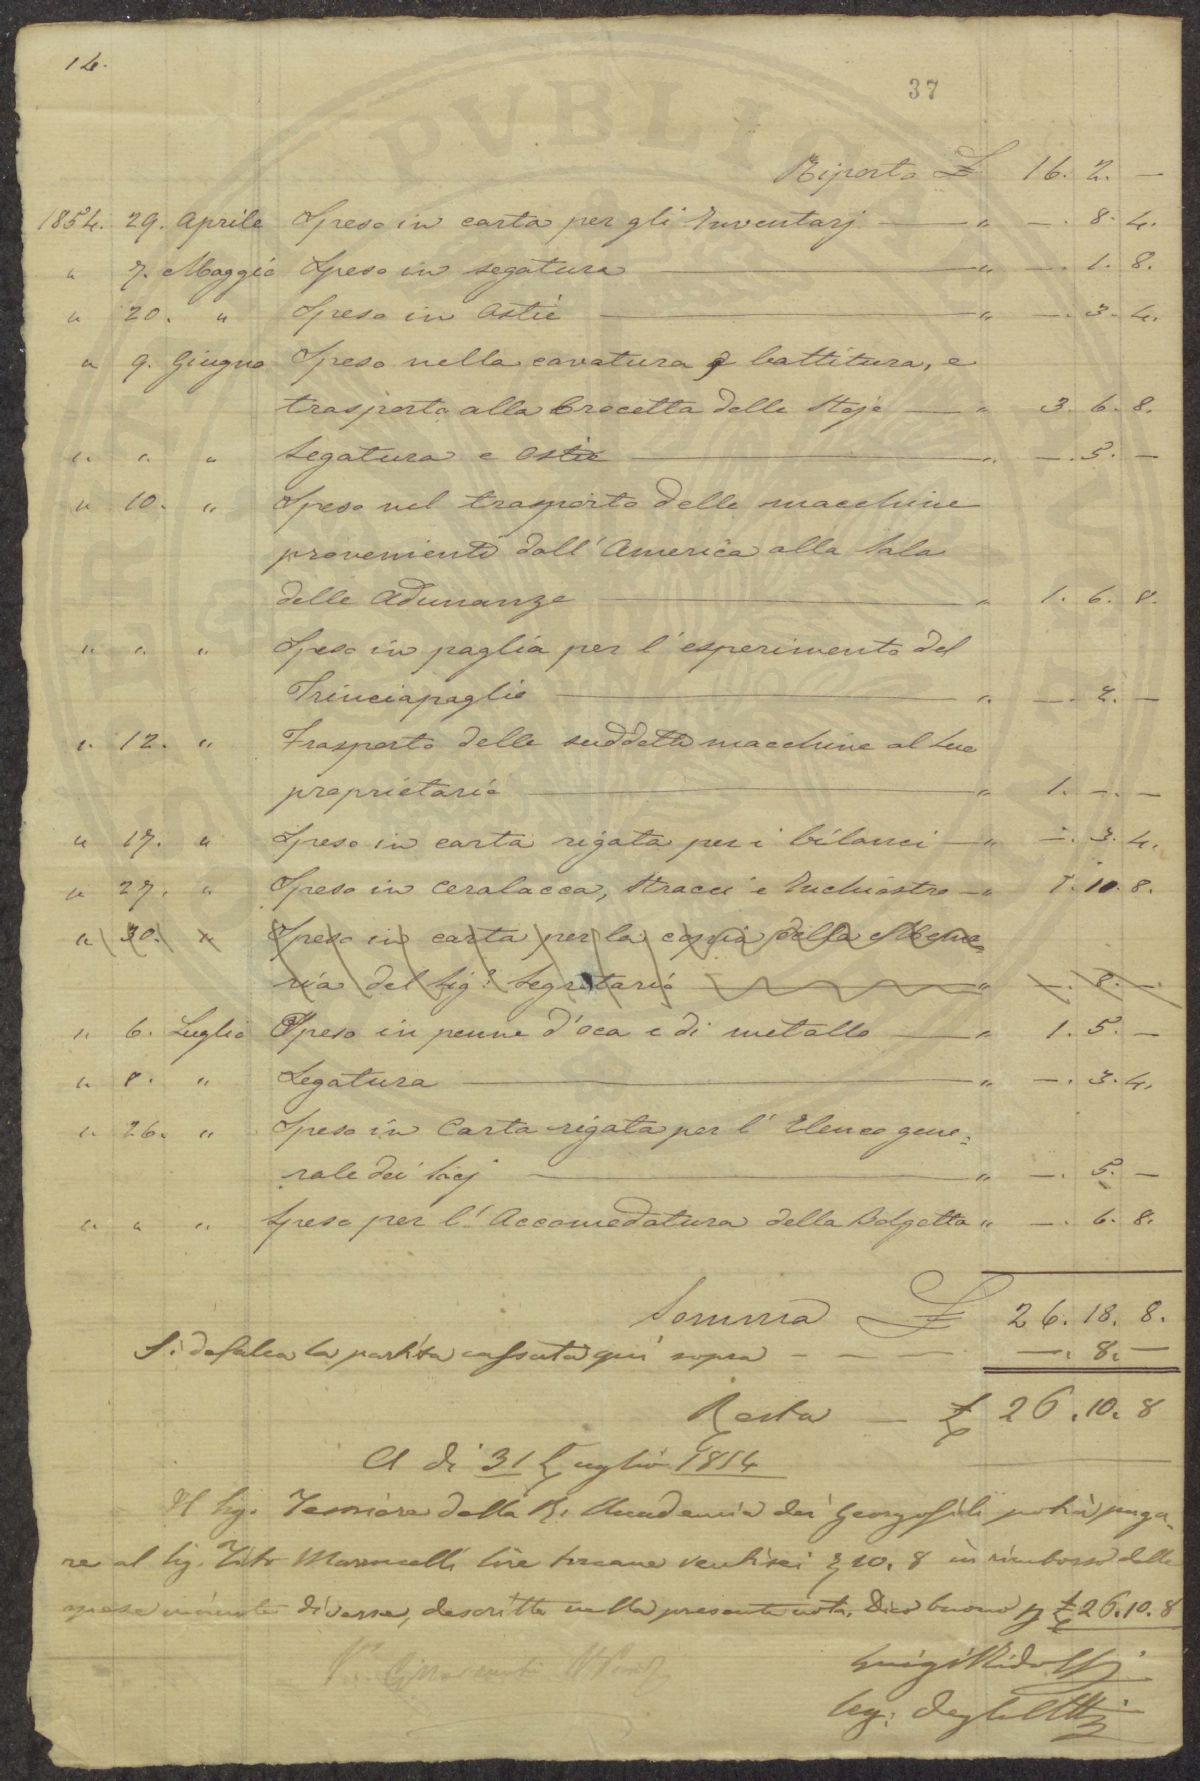 14.
37
PVBLICO
Riporto £ 16. 2. —
1854. 29. Aprile Spese in carta per gli Inventarj — " —. 8. 4.
" 7. Maggio Spese in segatura — " —. 1. 8.
" 20. " Spese in Ostie — " —. 3. 4.
" 9. Giugno Spese nella cavatura, battitura, e
trasporto alla Crocetta delle Stoje — " 3. 6. 8.
" " " Segatura e Ostie — " —. 5. —
" 10. " Spese nel trasporto delle macchine
provenienti dall'America alla Sala
delle Adunanze — " 1. 6. 8.
" " " Spese in paglia per l'esperimento del
Trinciapaglia — " —. 2. —
" 12. " Trasporto delle suddette macchine al suo
proprietario — " 1. —. —
" 17. " Spese in carta rigata per i bilanci — " —. 3. 4.
" 27. " Spese in Ceralacca, Stracci e Inchiostro — " 1. 10. 8.
" 30. " Spese in carta per la copia della Memo=
ria del Sig.r Segretario — " —. 8. —
" 6. Luglio Spese in penne d'oca e di metallo — " 1. 5. —
" 8. " Segatura — " —. 3. 4.
" 26. " Spese in Carta rigata per l'Elenco gene=
rale dei Socj — " —. 5. —
" " " Spese per l'Accomodatura della Bolgetta " —. 6. 8.
Somma £ 26. 18. 8.
Si defalca la partita cassata qui sopra — —. 8. —
Resta — £ 26. 10. 8
A di 31 Luglio 1854
Il Sig. Tesoriere della R. Accademia dei Georgofili potrà paga=
re al Sig. Tito Marucelli lire toscane ventisei 10. 8 in rimborso delle
spese minute diverse, descritte nella presente nota. Dico buono p £ 26. 10. 8
Luigi Ridolfi
Seg: degli Atti